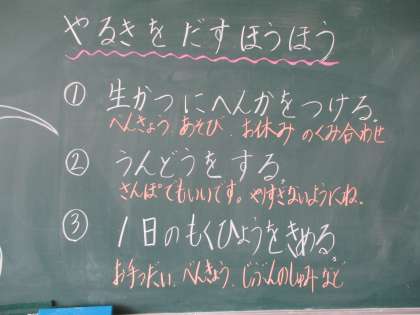 やるきをだすほうほう
① 生かつにへんかをつける。
べんきょう、あそび、お休みのくみ合わせ
② うんどうをする。
さんぽでもいいです。やりすぎないようにね。
③ 1日のもくひょうをきめる。
お手つだい、べんきょう、じぶんのしゅみなど